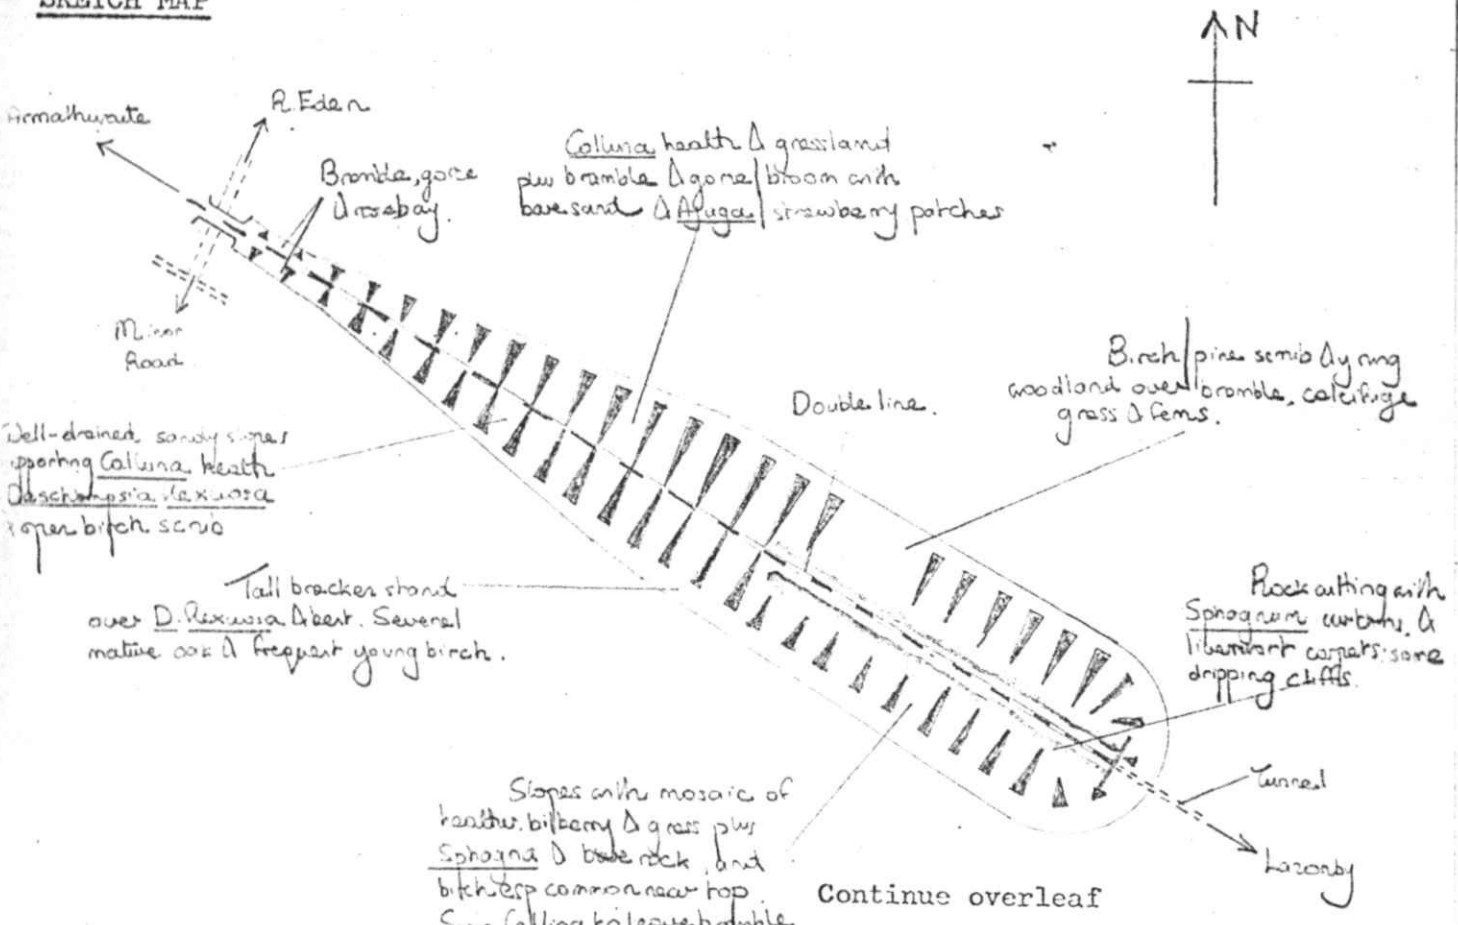 SKETCH MAP
N
Armathwaite
R. Eden
Bramble, gorse
& rosebay.
Calluna heath & grassland
plus bramble & gorse/broom with
bare sand & Ajuga/strawberry patches
Minor
Road
Birch/pine scrub & young
woodland over bramble, calcifuge
grass & ferns.
Double line.
Well-drained sandy slopes
supporting Calluna heath
Deschampsia flexuosa
& open birch scrub
Tall bracken stand
over D. flexuosa & bent. Several
mature oak & frequent young birch.
Rock cutting with
Sphagnum curtains, &
liverwort carpets; some
dripping cliffs.
Tunnel
Lazonby
Slopes with mosaic of
heather, bilberry & grass plus
Sphagna & bare rock, and
birch esp common near top.
Continue overleaf